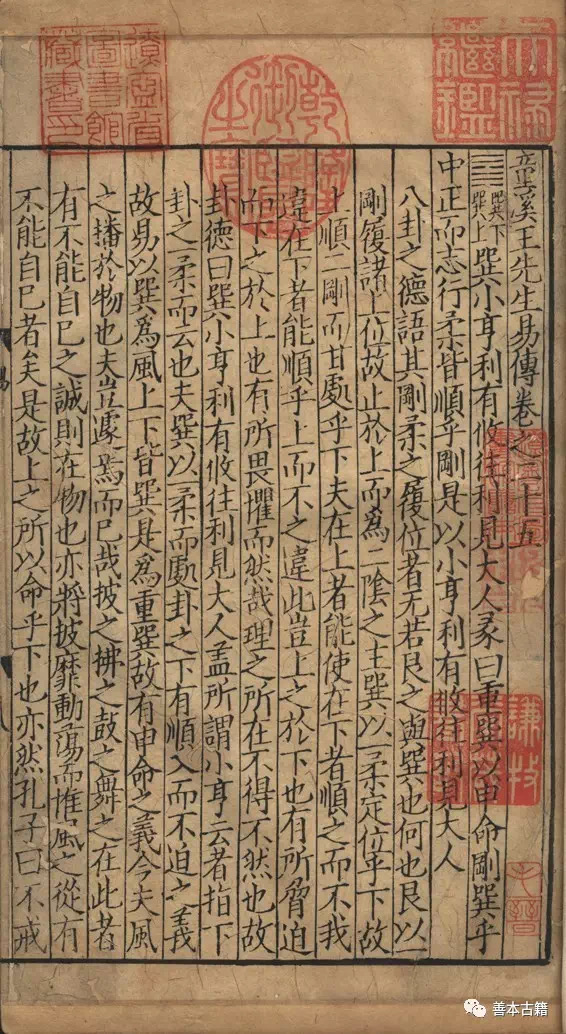 童溪王先生易傳卷之二十五
巽下巽上巽小亨利有攸往利見大人彖曰重巽以申命剛巽乎
中正而志行柔皆順乎剛是以小亨利有攸往利見大人
八卦之德語其剛柔之履位者无若艮之與巽也何也艮以一
剛履諸上位故止於上而爲二陰之主巽以一柔定位乎下故
上順二剛而甘處乎下夫在上者能使在下者順之而不我
違在下者能順乎上而不之違此豈上之於下也有所脅迫
而下之於上也有所畏懼而然哉理之所在不得不然也故
卦德曰巽小亨利有攸往利見大人盖所謂小亨云者指下
卦之一柔而云也夫巽以一柔而處卦之下有順入而不迫之義
故易以巽爲風上下皆巽是爲重巽故有申命之義今夫風
之播於物也夫豈遽焉而已哉披之拂之鼓之舞之在此者
有不能自已之誠則在物也亦將披靡動蕩而惟風之從有
不能自已者矣是故上之所以命乎下也亦然孔子曰不戒
天祿繼鑑
乾隆御覽之寶
遼寧省圖書館藏書印
謙牧
毛晉
善本古籍